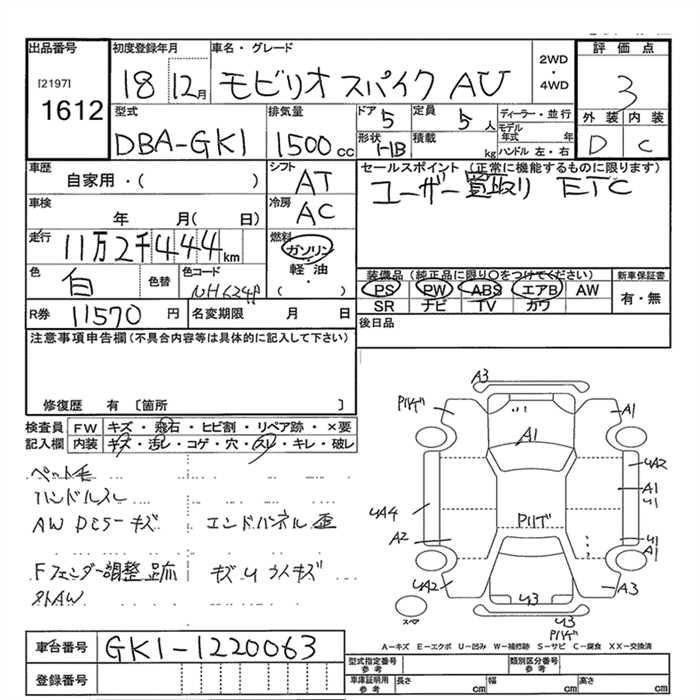 出品番号
[2197]
1612
初度登録年月
18 12月
車名・グレード
モビリオ スパイク AU
2WD
・
4WD
評価点
3
型式
DBA-GK1
排気量
1500 cc
ドア 5
定員 5 人
形状 HB
積載 kg
ディーラー・並行
モデル年式 年
ハンドル 左・右
外装 内装
D C
車歴
自家用・( )
シフト
AT
セールスポイント (正常に機能するものに限ります)
ユーザー買取り ETC
車検
年 月( 日)
冷房
AC
走行
11万2千444km
燃料
ガソリン
軽油
・
( )
色
白
色替
色コード
装備品 (純正品に限り○をつけてください)
新車保証書
PS PW ABS エアB AW
SR ナビ TV カワ
有・無
R券 11570 円
名変期限 月 日
後日品
注意事項申告欄(不具合内容等は具体的に記入して下さい)
修復歴 有 〔箇所 〕
検査員
記入欄
FW キズ・飛石・ヒビ割・リペア跡・×要
内装 キズ・汚レ・コゲ・穴・スレ・キレ・破レ
ペット毛
ハンドルスレ
エンドパネル歪
Fフェンダー調整跡
外AW
A3
A1
A1
UA2
A1
U1
U1
A1
UA4
A2
UA2
A3
U3
U3
スペア
A-キズ E-エクボ U-凹み W-補修跡 S-サビ C-腐食 XX-交換済
車台番号 GK1-1220063
登録番号
型式指定番号
参考
類別区分番号
参考
車庫証明用
参考
長さ cm
幅 cm
高さ cm